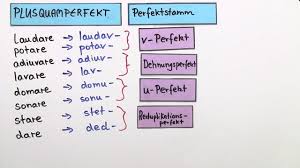 PLUSQUAMPERFEKT Perfektstamm
laudare → laudav-
potare → potav- v-Perfekt
adiuvare → adiuv-
lavare → lav- Dehnungsperfekt
domare → domu-
sonare → sonu- u-Perfekt
stare → stet-
dare → ded- Reduplikations-
perfekt